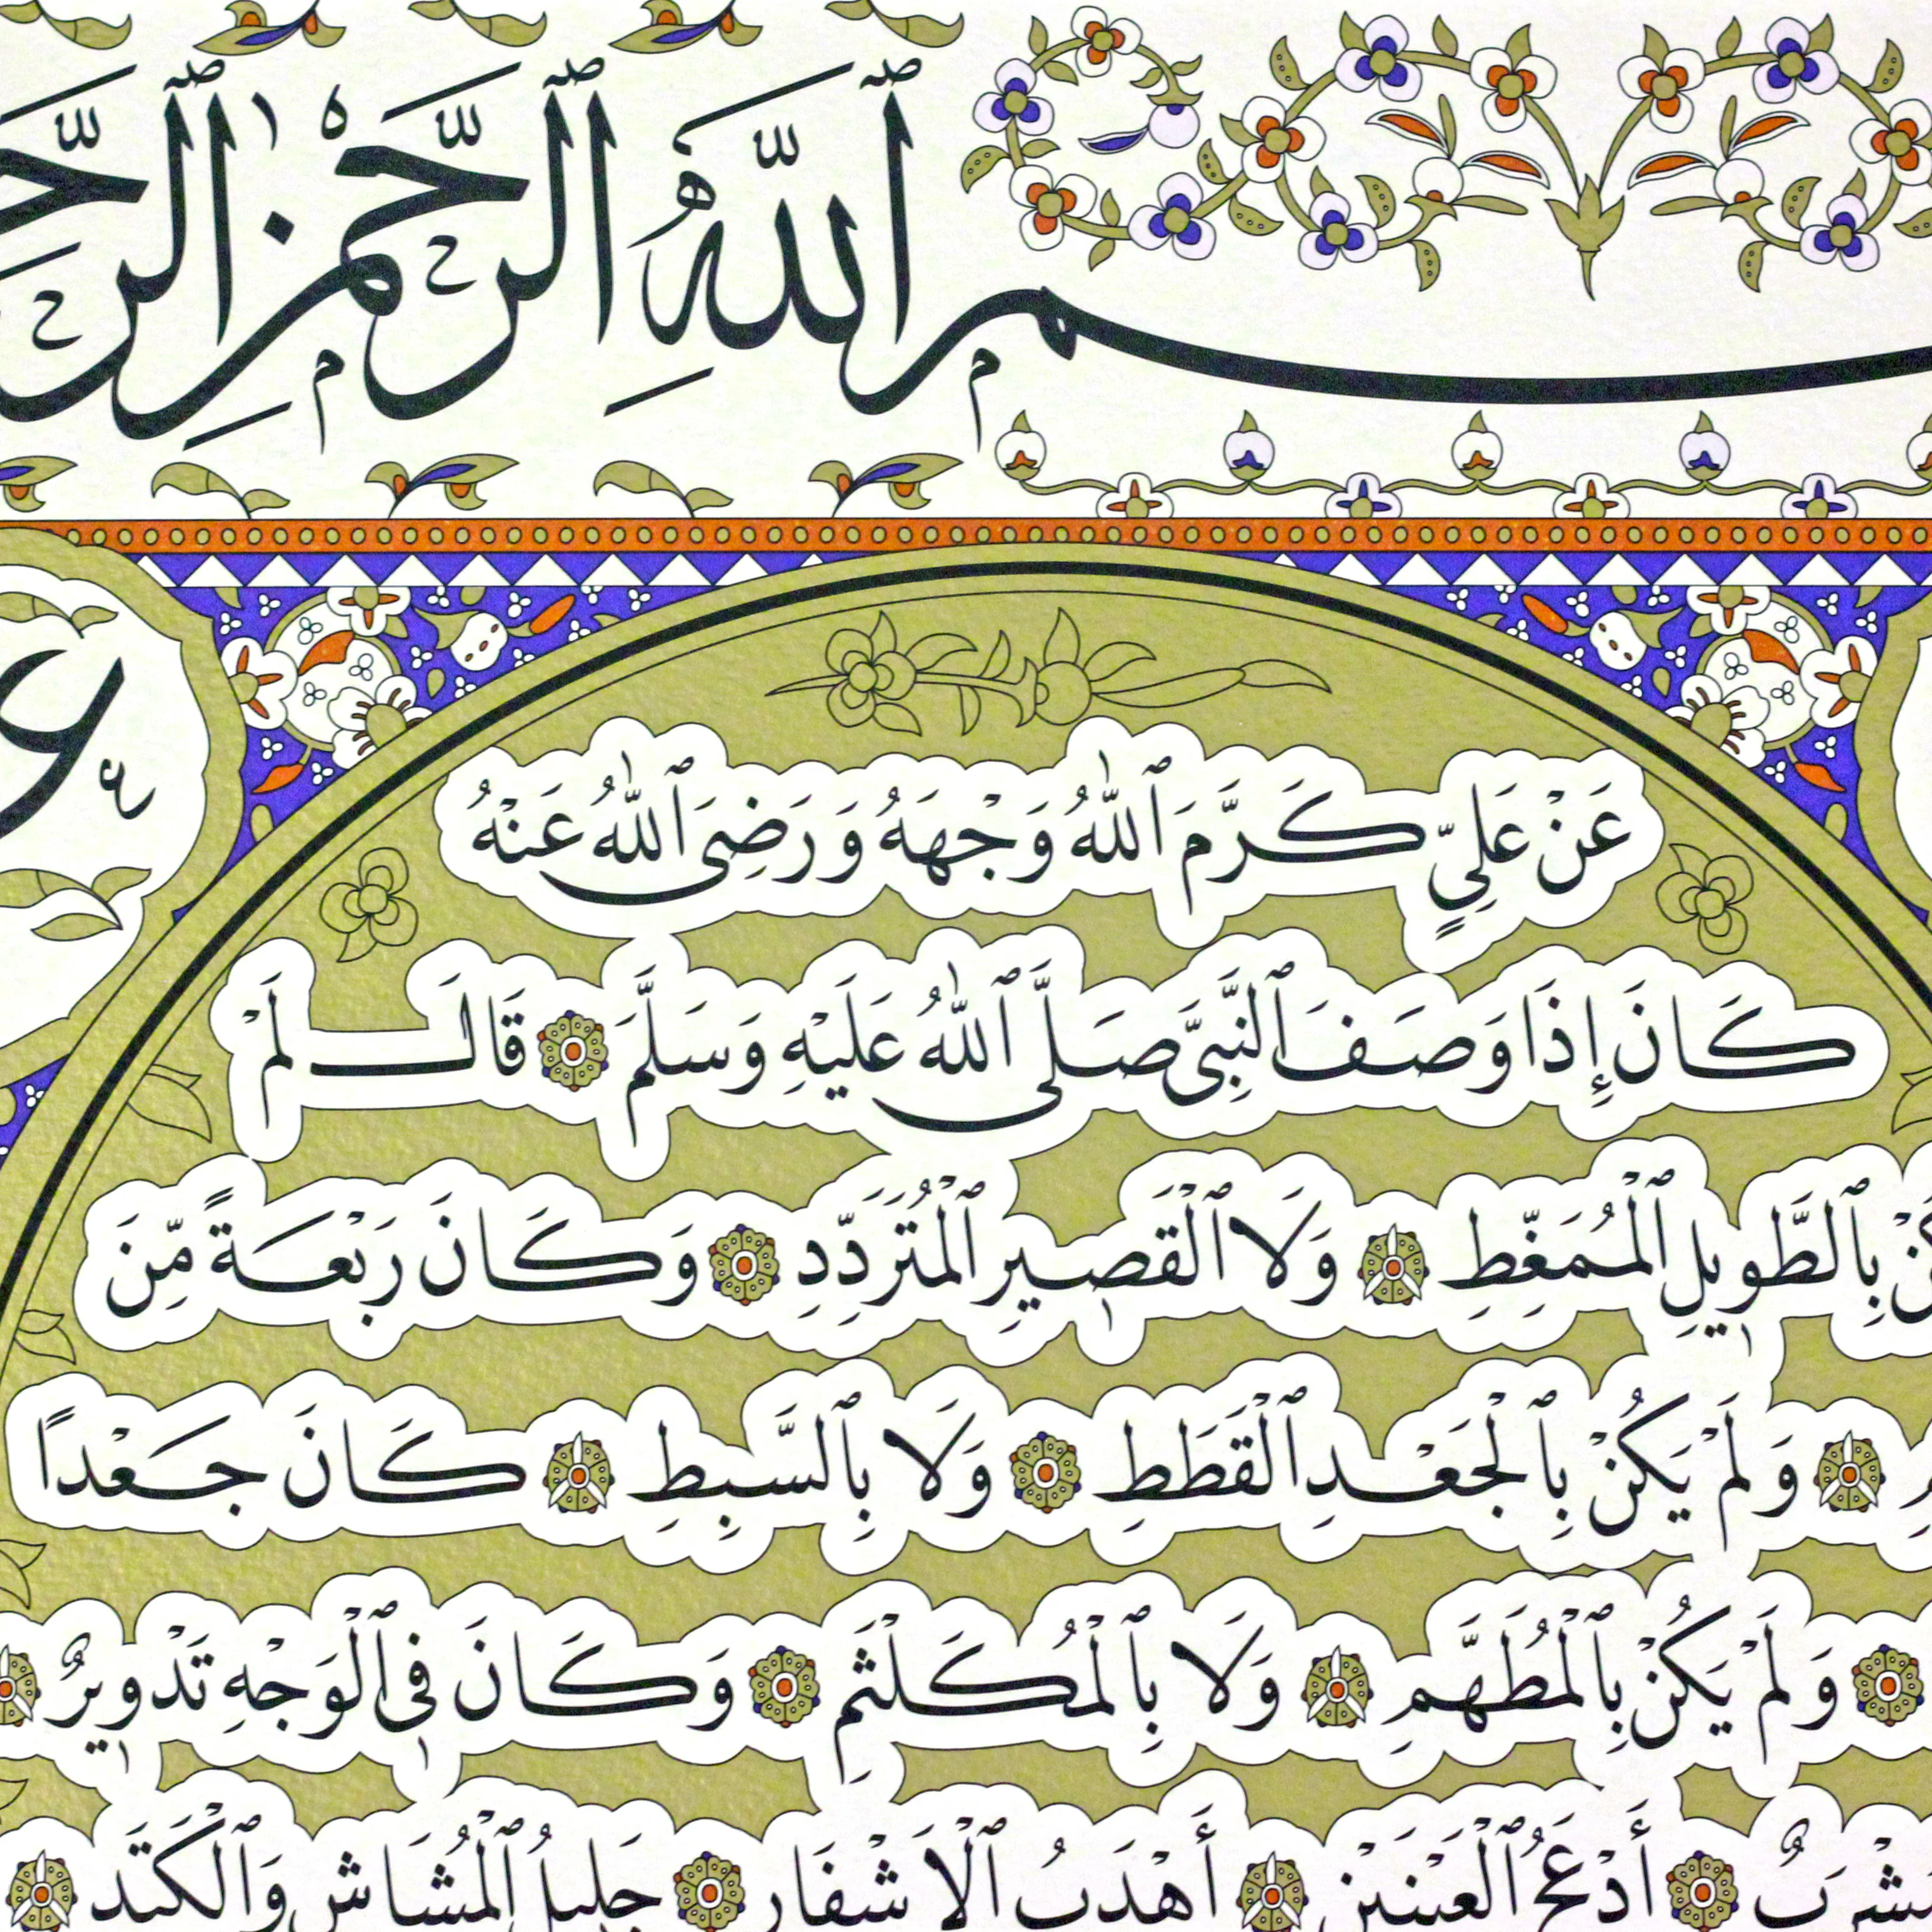 ٱللَّهِ ٱلرَّحْمٰنِ
عَنْ عَلِيٍّ كَرَّمَ ٱللّٰهُ وَجْهَهُ وَرَضِىَ ٱللّٰهُ عَنْهُ
كَانَ إِذَا وَصَفَ ٱلنَّبِىَّ صَلَّى ٱللّٰهُ عَلَيْهِ وَسَلَّمَ قَالَ لَمْ
بِٱلطَّوِيلِ ٱلْمُمَغِّطِ وَلَا ٱلْقَصِيرِ ٱلْمُتَرَدِّدِ وَكَانَ رَبْعَةً مِّنَ
وَلَمْ يَكُنْ بِٱلْجَعْدِ ٱلْقَطَطِ وَلَا بِٱلسَّبِطِ كَانَ جَعْدًا
وَلَمْ يَكُنْ بِٱلْمُطَهَّمِ وَلَا بِٱلْمُكَلْثَمِ وَكَانَ فِى ٱلْوَجْهِ تَدْوِيرٌ
أَدْعَجُ ٱلْعَيْنَيْنِ أَهْدَبُ ٱلْأَشْفَارِ جَلِيلُ ٱلْمُشَاشِ وَٱلْكَتَدِ